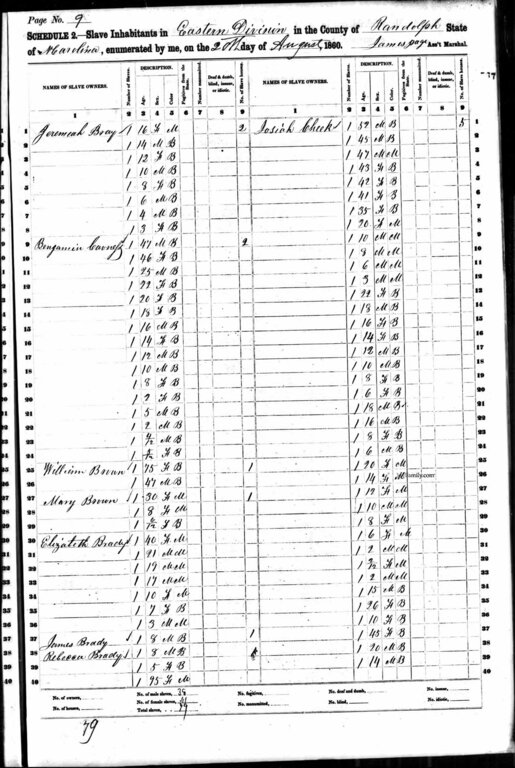 Page No. 9
SCHEDULE 2.—Slave Inhabitants in Eastern Division in the County of Randolph State
of N Carolina, enumerated by me, on the 20th day of August, 1860. James Ass't Marshal.
NAMES OF SLAVE OWNERS. Number of Slaves. DESCRIPTION. Age. Sex. Color. Fugitives from the State. Number manumitted. Deaf & dumb, blind, insane, or idiotic. No. of Slave houses. NAMES OF SLAVE OWNERS. Number of Slaves. DESCRIPTION. Age. Sex. Color. Fugitives from the State. Number manumitted. Deaf & dumb, blind, insane, or idiotic. No. of Slave houses.
1 2 3 4 5 6 7 8 9 1 2 3 4 5 6 7 8 9
1 Jeremeah Bray 1 16 F M 2 Josiah Cheek 1 52 M B 5 1
2 1 14 M B 1 45 M B 2
3 1 12 F B 1 47 M M 3
4 1 10 M B 1 43 F B 4
5 1 8 F B 1 42 F B 5
6 1 6 M B 1 41 F B 6
7 1 4 M B 1 35 F B 7
8 1 3 F B 1 20 F M 8
9 Benjamin 1 47 M B 2 1 10 M M 9
10 1 46 F B 1 8 M M 10
11 1 25 M B 1 6 M M 11
12 1 22 F B 1 3 M M 12
13 1 20 F B 1 22 F B 13
14 1 18 F B 1 18 M B 14
15 1 16 M B 1 16 F B 15
16 1 14 F B 1 14 F B 16
17 1 12 M B 1 12 M B 17
18 1 10 M B 1 10 M B 18
19 1 8 F B 1 8 F B 19
20 1 2 F B 1 6 F B 20
21 1 5 M B 1 18 M B 21
22 1 2 M B 1 16 M B 22
23 1 M B 1 8 F B 23
24 1 F B 1 6 M B 24
25 William 1 75 F B 1 1 20 F M 25
26 1 47 M B 1 14 F M 26
27 Mary Brown 1 30 F M 1 1 12 F M 27
28 1 8 F M 1 10 M M 28
29 1 F B 1 8 F M 29
30 Elizabeth Brady 1 40 F M 1 6 F M 30
31 1 21 M M 1 2 M M 31
32 1 19 M M 1 F M 32
33 1 17 M M 1 2 M M 33
34 1 10 F M 1 15 M B 34
35 1 7 F B 1 26 F B 35
36 1 3 M M 1 10 F B 36
37 James Brady 1 8 M B 1 1 45 F B 37
38 Rebecca Brady 1 8 M B 1 20 M B 38
39 1 5 F B 1 14 M B 39
40 1 25 F M 40
No. of owners, No. of male slaves, No. fugitives, No. deaf and dumb, No. insane,
No. of houses, No. of female slaves, No. manumitted, No. blind, No. idiotic,
Total slaves, 79
79